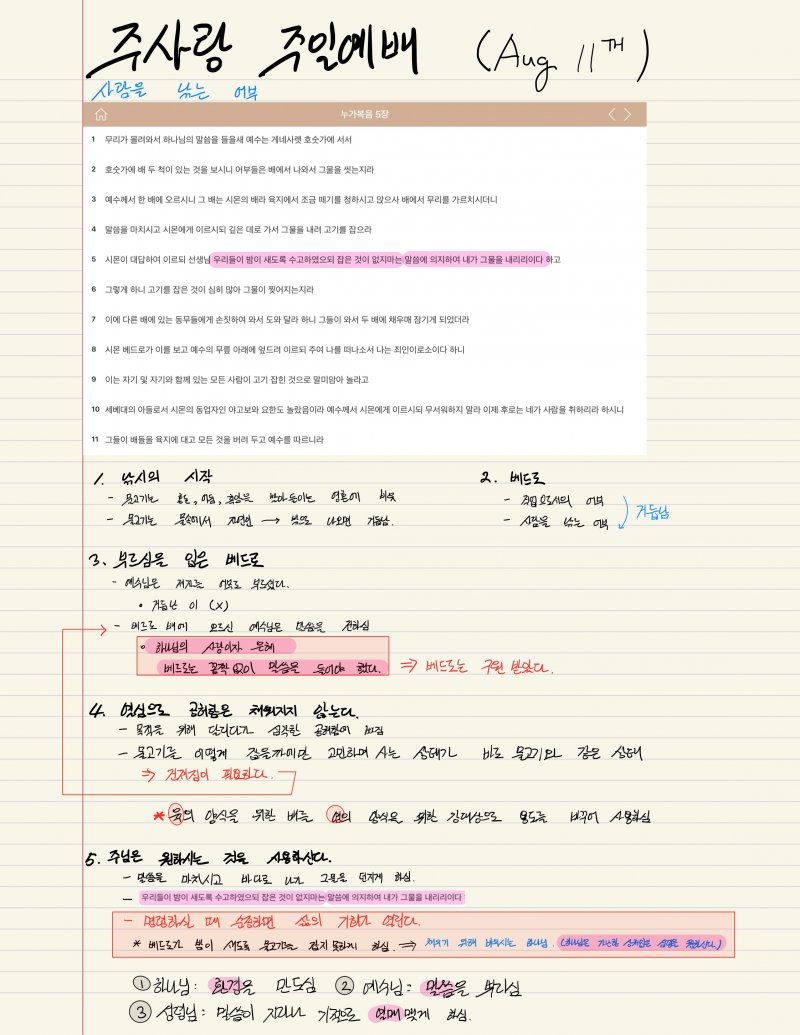 주사랑 주일예배 (Aug 11th)
사람을 낚는 어부
누가복음 5장
1 무리가 몰려와서 하나님의 말씀을 들을새 예수는 게네사렛 호숫가에 서서
2 호숫가에 배 두 척이 있는 것을 보시니 어부들은 배에서 나와서 그물을 씻는지라
3 예수께서 한 배에 오르시니 그 배는 시몬의 배라 육지에서 조금 떼기를 청하시고 앉으사 배에서 무리를 가르치시더니
4 말씀을 마치시고 시몬에게 이르시되 깊은 데로 가서 그물을 내려 고기를 잡으라
5 시몬이 대답하여 이르되 선생님 우리들이 밤이 새도록 수고하였으되 잡은 것이 없지마는 말씀에 의지하여 내가 그물을 내리리이다 하고
6 그렇게 하니 고기를 잡은 것이 심히 많아 그물이 찢어지는지라
7 이에 다른 배에 있는 동무들에게 손짓하여 와서 도와 달라 하니 그들이 와서 두 배에 채우매 잠기게 되었더라
8 시몬 베드로가 이를 보고 예수의 무릎 아래에 엎드려 이르되 주여 나를 떠나소서 나는 죄인이로소이다 하니
9 이는 자기 및 자기와 함께 있는 모든 사람이 고기 잡힌 것으로 말미암아 놀라고
10 세베대의 아들로서 시몬의 동업자인 야고보와 요한도 놀랐음이라 예수께서 시몬에게 이르시되 무서워하지 말라 이제 후로는 네가 사람을 취하리라 하시니
11 그들이 배들을 육지에 대고 모든 것을 버려 두고 예수를 따르니라
1. 낚시의 시작
- 물고기는 혼돈, 어둠, 흑암을 받아들이는 영혼에 비유
- 물고기는 물속에서 자연인 → 밖으로 나오면 거듭남.
2. 베드로
- 직업으로서의 어부
- 사람을 낚는 어부
거듭남
3. 부르심을 입은 베드로
- 예수님은 저자는 어부로 부르셨다.
• 거듭난 이 (X)
- 베드로 배에 오르신 예수님은 말씀을 전하심
• 하나님의 사랑이자 은혜
베드로는 꼼짝없이 말씀을 들어야 했다.
⇒ 베드로는 구원 받았다.
4. 열심으로 공허함은 채워지지 않는다.
- 목적을 위해 달리다가 심각한 공허함이
- 물고기를 어떻게 잡을까에만 고민하며 사는 상태가 바로 물고기와 같은 상태
⇒ 건져짐이 필요하다.
* 육의 양식을 위한 배를 영의 양식을 위한 강대상으로 용도를 바꾸어 사용하심
5. 주님은 원하시는 것을 사용하신다.
- 말씀을 마치시고 바다로 나가 그물을 던지게 하심.
- 우리들이 밤이 새도록 수고하였으되 잡은 것이 없지마는 말씀에 의지하여 내가 그물을 내리리이다
- 명령하실 때 순종하면 삶의 기적이 일어난다.
* 베드로가 밤이 새도록 물고기를 잡지 못하게 하심. ⇒ 채우기 위해 비우시는 하나님. (하나님은 가난한 심령을 원하신다.)
① 하나님: 환경을 만드심 ② 예수님: 말씀을 부르심
③ 성령님: 말씀이 지나나 기적으로 열매맺게 하심.